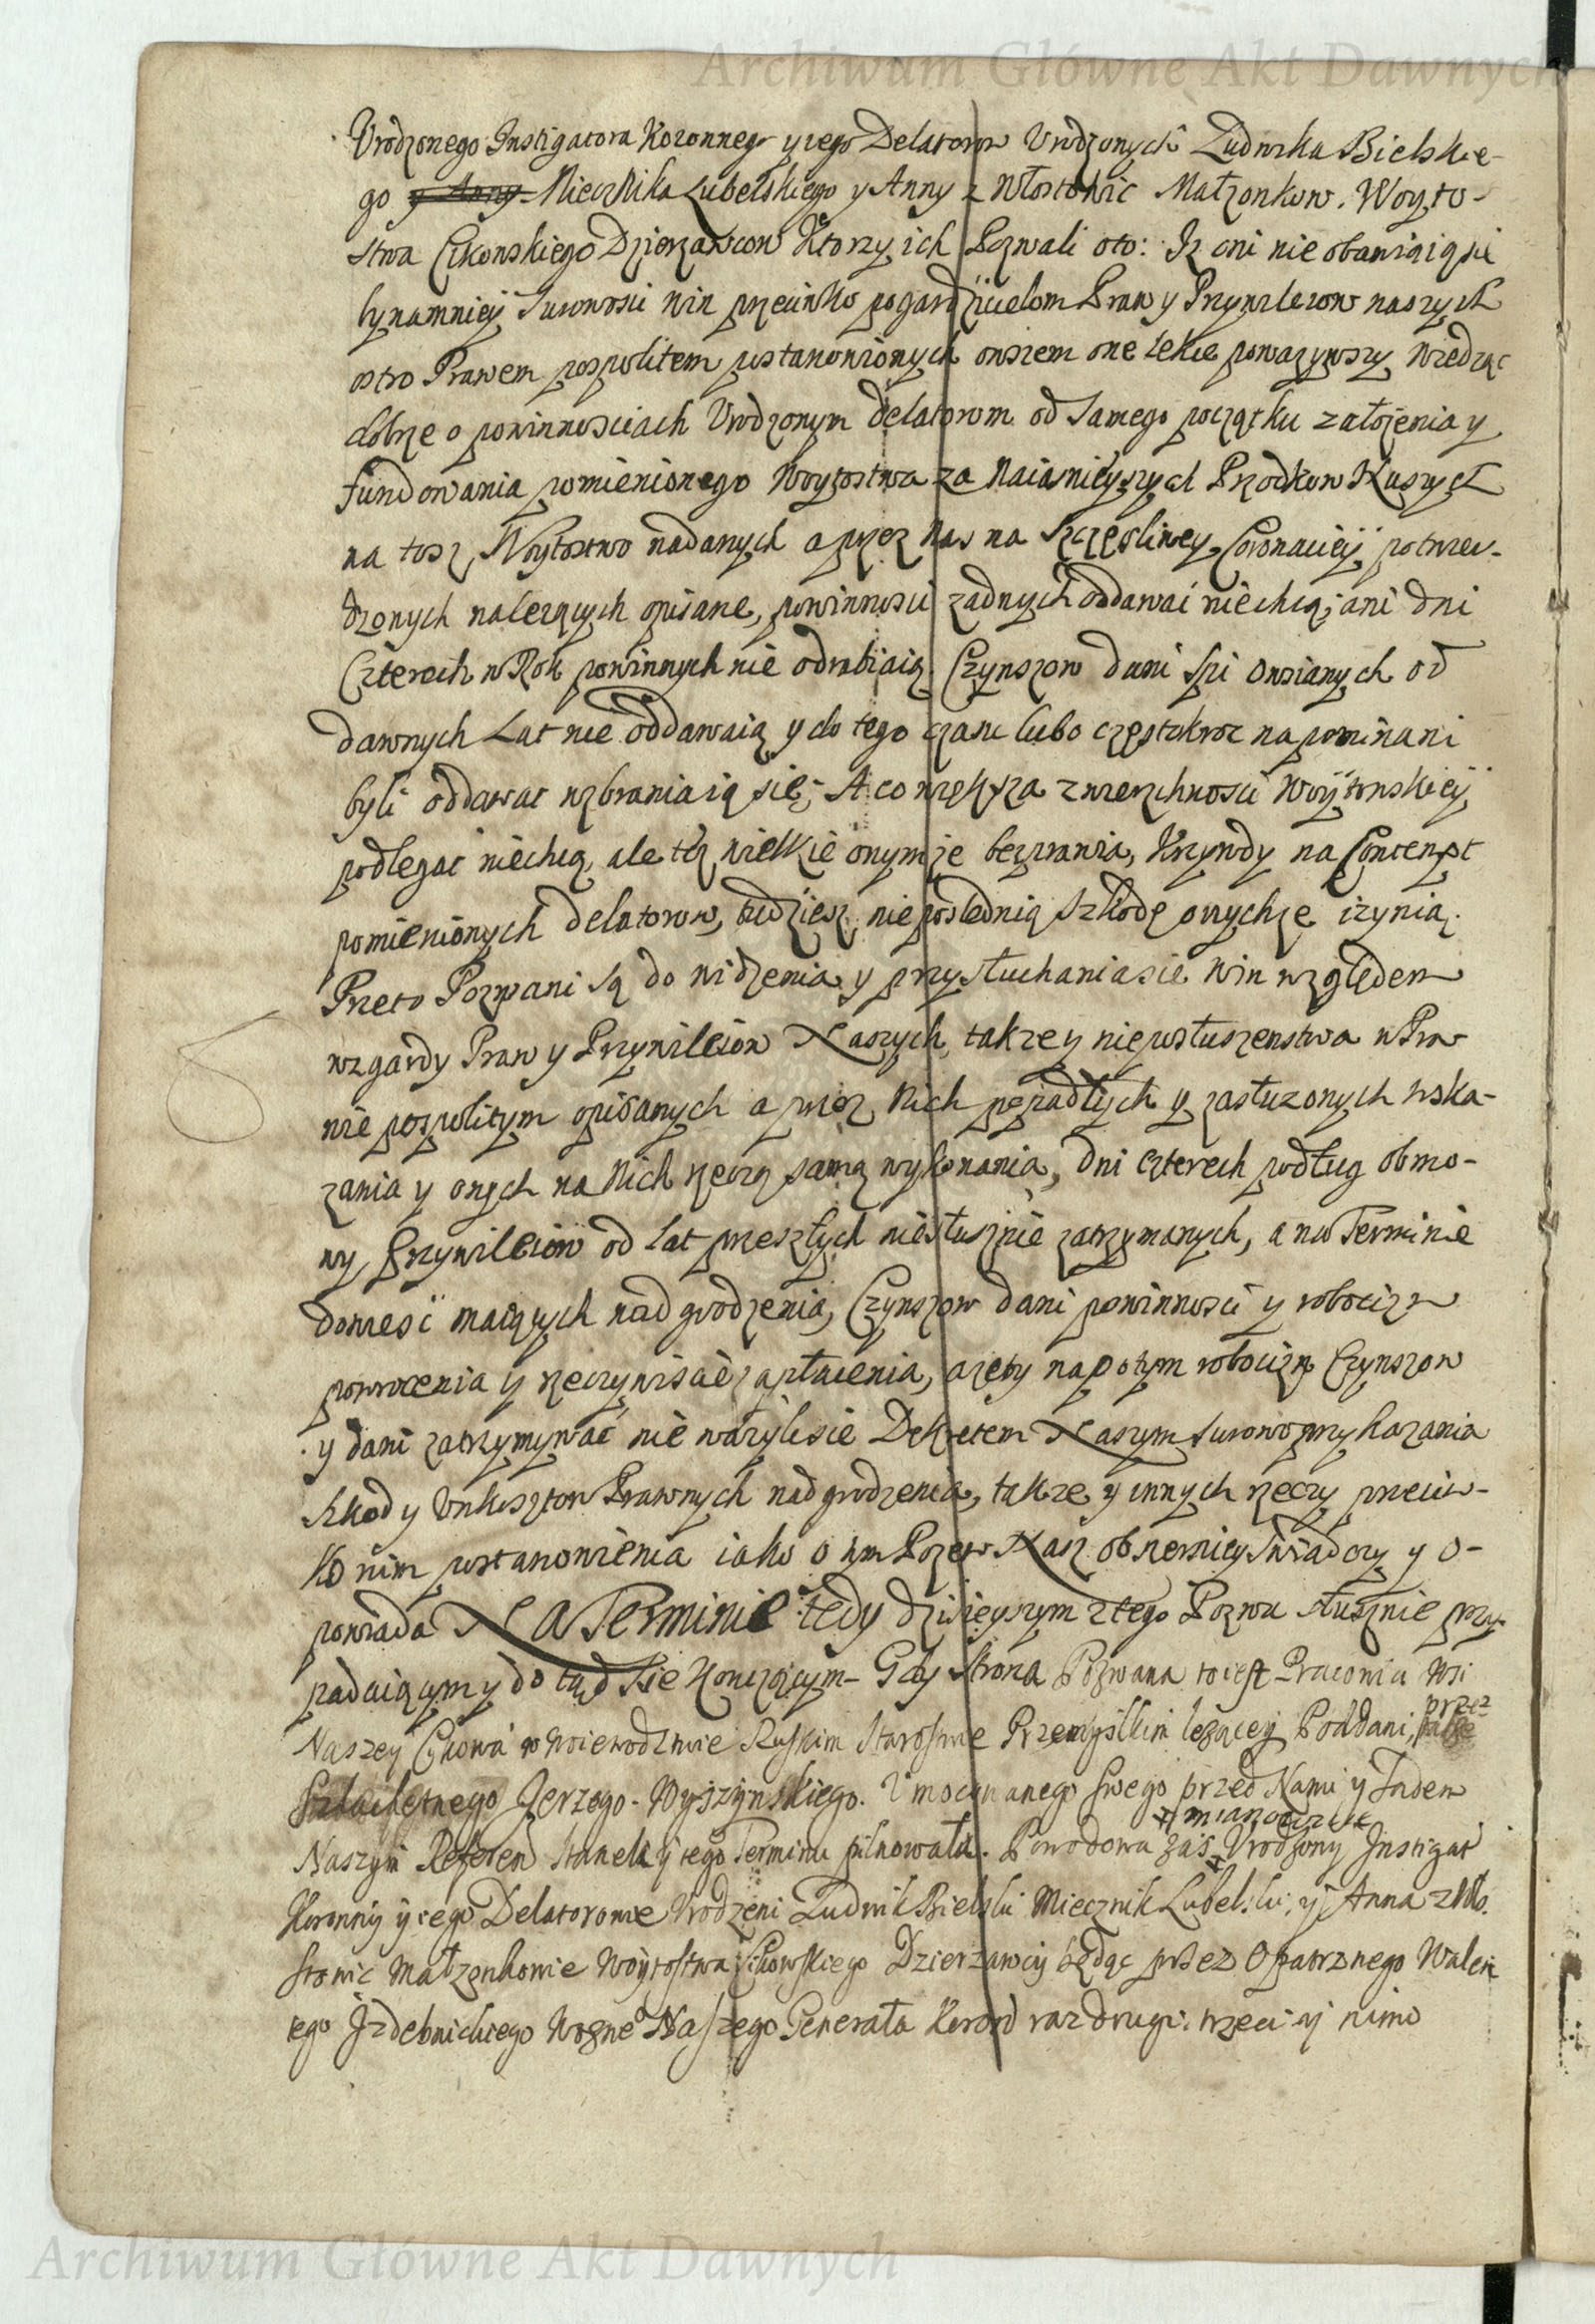 Archiwum Główne Akt Dawnych
Urodzonego Instigatora Koronnego y iego Delatorow Urodzonych Ludwika Bielskie-
go y Anny Miecznika Lubelskiego y Anny z Włostowic Małzonkow. Woyto-
stwa Cikowskiego Dzierzawcow Ktorzy ich Pozwali oto: Iz oni nie obawiaiąsie
bynamniey surowosci win przeciwko pogardzicielom Praw y Przywileiow naszych
ostro Prawem pospolitem postanowionych owszem one lekce powazywszy wiedząc
dobrze o powinnosciach Urodzonym delatorom od samego początku załozenia y
fundowania pomienionego Woytostwa za Naiasnieyszych Przodkow Naszych
na tosz Woytostwo nadanych a przez Nas na szczęsliwey Coronaciey potwier-
dzonych nalezących opisane, powinnosci zadnych oddawai niechcą; ani dni
Czterech w Rok powinnych nie odrabiaią Czynszow dani Spi owsianych od
dawnych Lat nie oddawaią y do tego czasu lubo częstokroc napominani
byli oddawac wzbraniaią się; A co większa zwierzchnosci Woytowskiey
podlegac niechcą, ale tez wielkie onymze bezprawia, Krzywdy na Contempt
pomienionych delatorow, tudziesz nieposlednią szkodę onychze czynią.
Przeto Pozwani są do widzenia y przysłuchaniasie win względem
wzgardy Praw y Przywileiow Naszych, takze y nieposłuszenstwa w Pra-
wie pospolitym opisanych a przez Nich popadłych y zasłuzonych wska-
zania y onych na Nich rzeczą samą wykonania, dni czterech podług obmo-
wy Przywileiow od lat przeszłych niesłusznie zatrzymanych, a na Terminie
dowiesc maiących nadgrodzenia, Czynszow dani powinnosci y robocizn
powrocenia y rzeczywiscie zapłacenia, azeby napotym robocizn Czynszow
y dani zatrzymywać nie wazylisie Dekretem Naszym surowo przykazania
szkod y Unkosztow Prawnych nadgrodzenia, takze y innych rzeczy przeciw-
ko nim postanowienia iako o tym Pozew Nasz obszerniey swiadczy y o-
powiada Na Terminie tedy dzisieyszym z tego Pozwu słusznie przy-
padaiącym y do tąd sie konczącym - Gdy Strona Pozwana toiest Pracowia Wsi
przez
Naszey Cykowa w Woiewodztwie Ruskim Starostwie Przemyslkim lezącey Poddani,
Szlachetnego Jerzego Wyszynskiego. Umocowanego swego przed Nami y Sądem
mianowicie
Naszym Referen stanela y tego Terminu pilnowała. Powodowa zas Urodzony Instigat
Koronny y iego Delatorowie Urodzeni Ludwik Bielski Miecznik Lubelski, y Anna z Wło-
stowic Małzonkowie Woytostwa Cikowskiego Dzierzawcy będąc przez Opatrznego Walen
tego Jzdebnickiego Wozne Naszego Generała Koron raz drugi, trzeci y nimo
Archiwum Główne Akt Dawnych